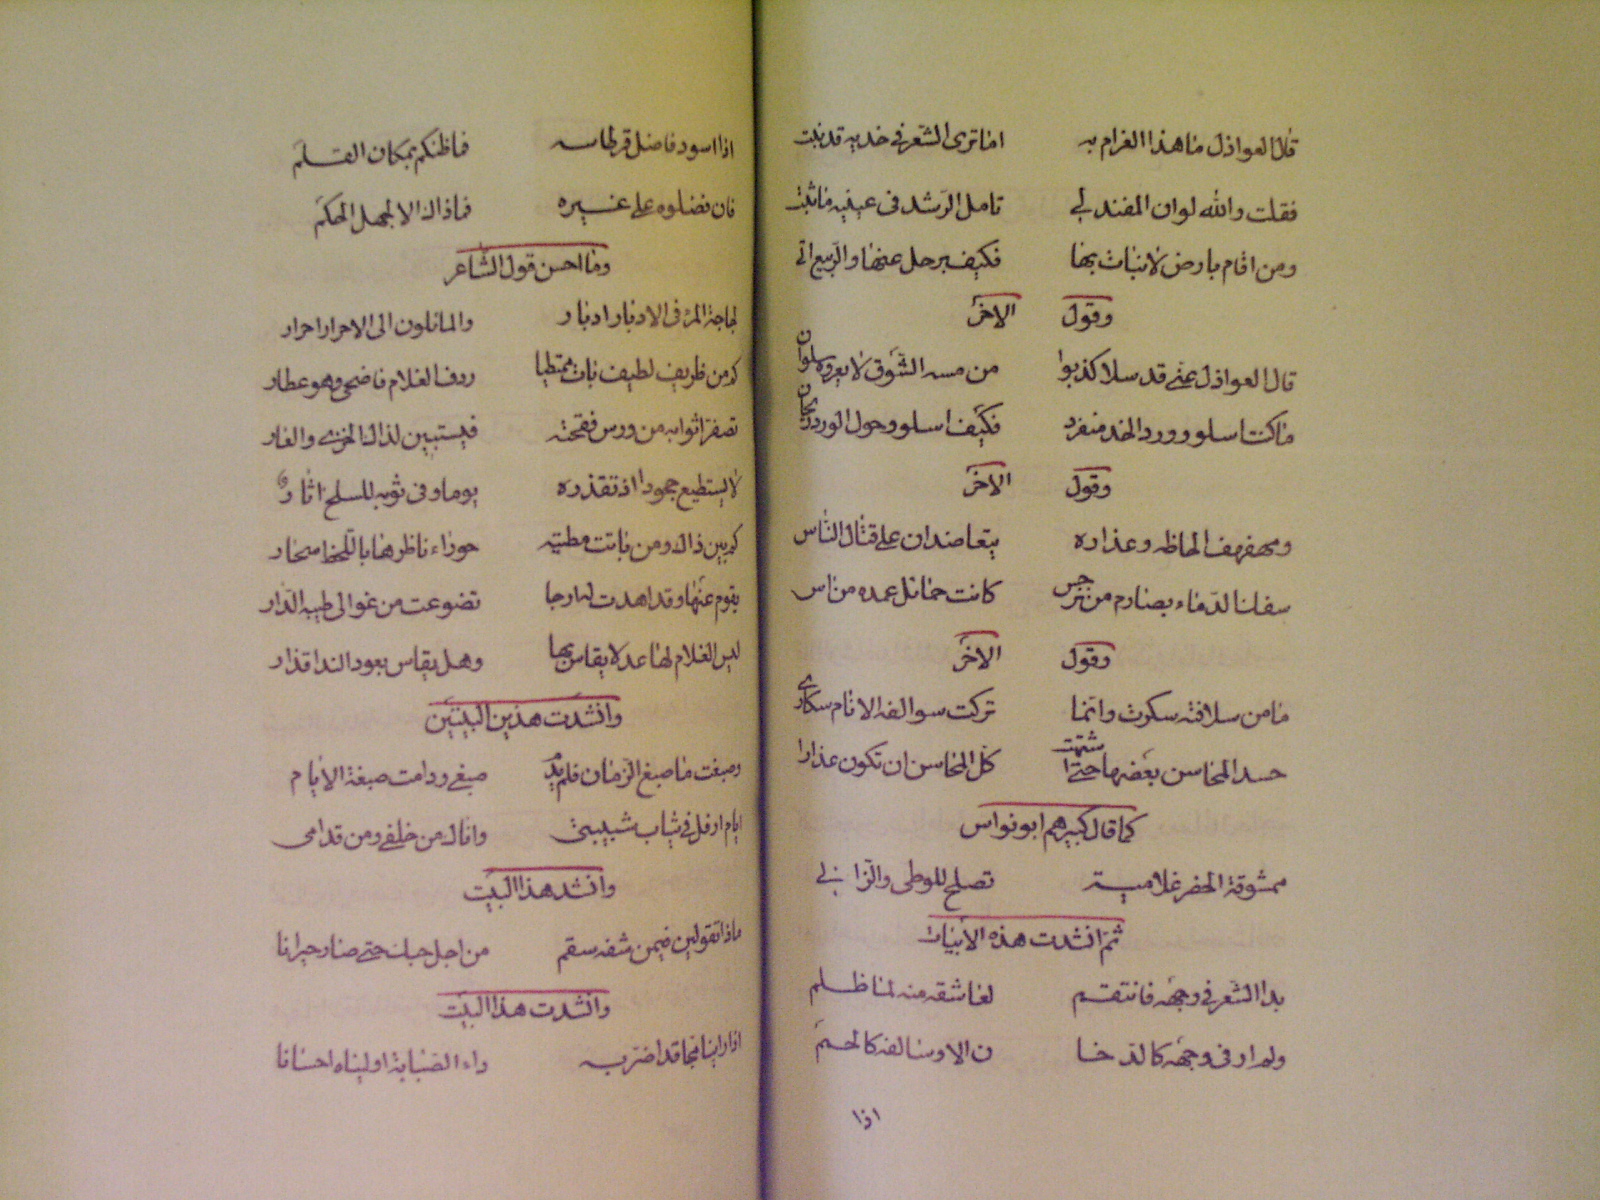 قال العواذل ماهذا الغرام به اما ترى الشعر فى خديه قد نبت
فقلت والله لو ان المفند لي تامل الرشد فى عينيه ما ثبت
ومن اقام بارض لا نبات بها فكيف يرحل عنها والربيع اتى
وقول الاخر
قال العواذل عنى قد سلا كذبوا من مسه الشوق لا يعروه سلوان
ما كنت اسلو وورد الخد منفرد فكيف اسلو وحول الورد ريحان
وقول الاخر
ومهفهف الحاظه وعذاره يتعاضدان على قتال الناس
سفك الدماء بصارم من نرجس كانت حمائل غمده من اس
وقول الاخر
ما من سلافته سكرت وانما تركت سوالفه الانام سكارى
حسد المحاسن بعضها حتى اشتهت كل المحاسن ان تكون عذارا
كما قال كبيرهم ابو نواس
ممشوقة الخصر غلامية تصلح للوطى والزانى
ثم انشدت هذه الابيات
بدا الشعر فى وجهه فانتقم لعاشقه منه لما ظلم
ولم ار فى وجهه كالدخا ن الا وسالفه كالحمم
اذا
اذا اسود فاضل قرطاسه فما ظنكم بمكان القلم
فان فضلوه على غيره فما ذاك الا لجهل الحكم
وما احسن قول الشاعر
لحاجة المرء فى الادبار ادبار والمائلون الى الاحرار احرار
كم من ظريف لطيف بات ممتطيا ردف الغلام فاضحى وهو عطار
تصفر اثوابه من ورس فقحته فيستبين لذاك الخزى والعار
لا يستطيع جحودا اذ تقذره يوما وفى ثوبه للسلح اثار
كم بين ذاك ومن باتت مطيته حوراء ناظرها باللحظ سحار
يقوم عنها وقد اهدت له ارجا تضوعت من غوالى طيبه الدار
ليس الغلام لها عدلا يقاس بها وهل يقاس بعود الند اقذار
وانشدت هذين البيتين
وصبغت ما صبغ الزمان فلم يدم صبغى ودامت صبغة الايام
ايام ارفل فى ثياب شبيبتى وانال من خلفى ومن قدامى
وانشد هذا البيت
ماذا تقولين فيمن شفه سقم من اجل حبك حتى صار حيرانا
وانشدت هذا البيت
اذا راينا محبا قد اضر به داء الصبابة اوليناه احسانا